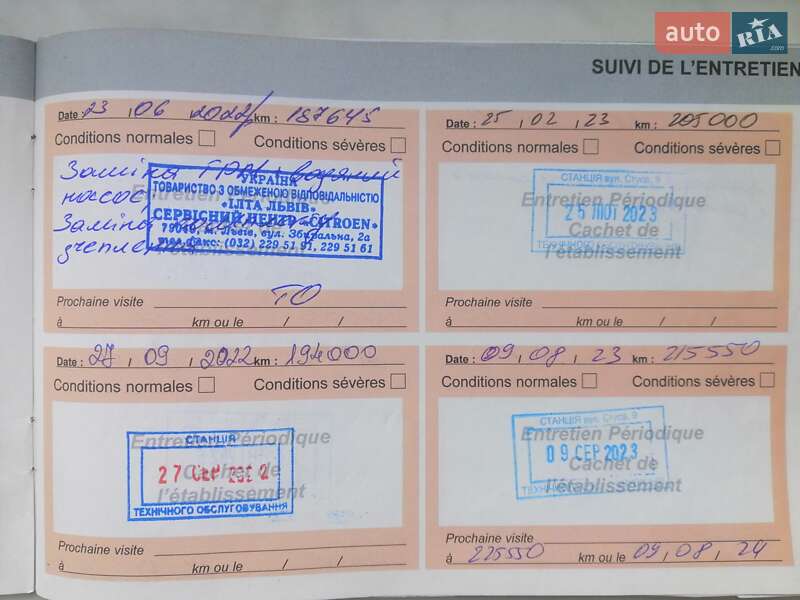 auto RIA .com
SUIVI DE L'ENTRETIEN
Date : 23 , 06 , 2022 km : 187645
Conditions normales Conditions sévères
Заміна ГРМ + водяний
насос
Заміна
зчеплення
УКРАЇНА
ТОВАРИСТВО З ОБМЕЖЕНОЮ ВІДПОВІДАЛЬНІСТЮ
«ІЛТА ЛЬВІВ»
СЕРВІСНИЙ ЦЕНТР «CITROEN»
79040, м. Львів, вул. Збиральна, 2а
тел. факс: (032) 229 51 91, 229 51 61
l'établissement
ТО
Prochaine visite
à km ou le / /
Date : 25 , 02 , 23 km : 205000
Conditions normales Conditions sévères
СТАНЦІЯ вул. Стуса, 9
Entretien Périodique
25 ЛЮТ 2023
Cachet de
ТЕХНІЧНОГО ОБСЛУГОВУВАННЯ
l'établissement
Prochaine visite
à km ou le / /
Date : 27 , 09 , 2022 km : 194000
Conditions normales Conditions sévères
СТАНЦІЯ
Entretien Périodique
27 СЕР 2022
Cachet de
l'établissement
ТЕХНІЧНОГО ОБСЛУГОВУВАННЯ
Prochaine visite
à km ou le / /
Date : 09 , 08 , 23 km : 215550
Conditions normales Conditions sévères
СТАНЦІЯ вул. Стуса, 9
Entretien Périodique
09 СЕР 2023
Cachet de
l'établissement
ТЕХНІЧНОГО
Prochaine visite
à 225550 km ou le 09 / 08 / 24